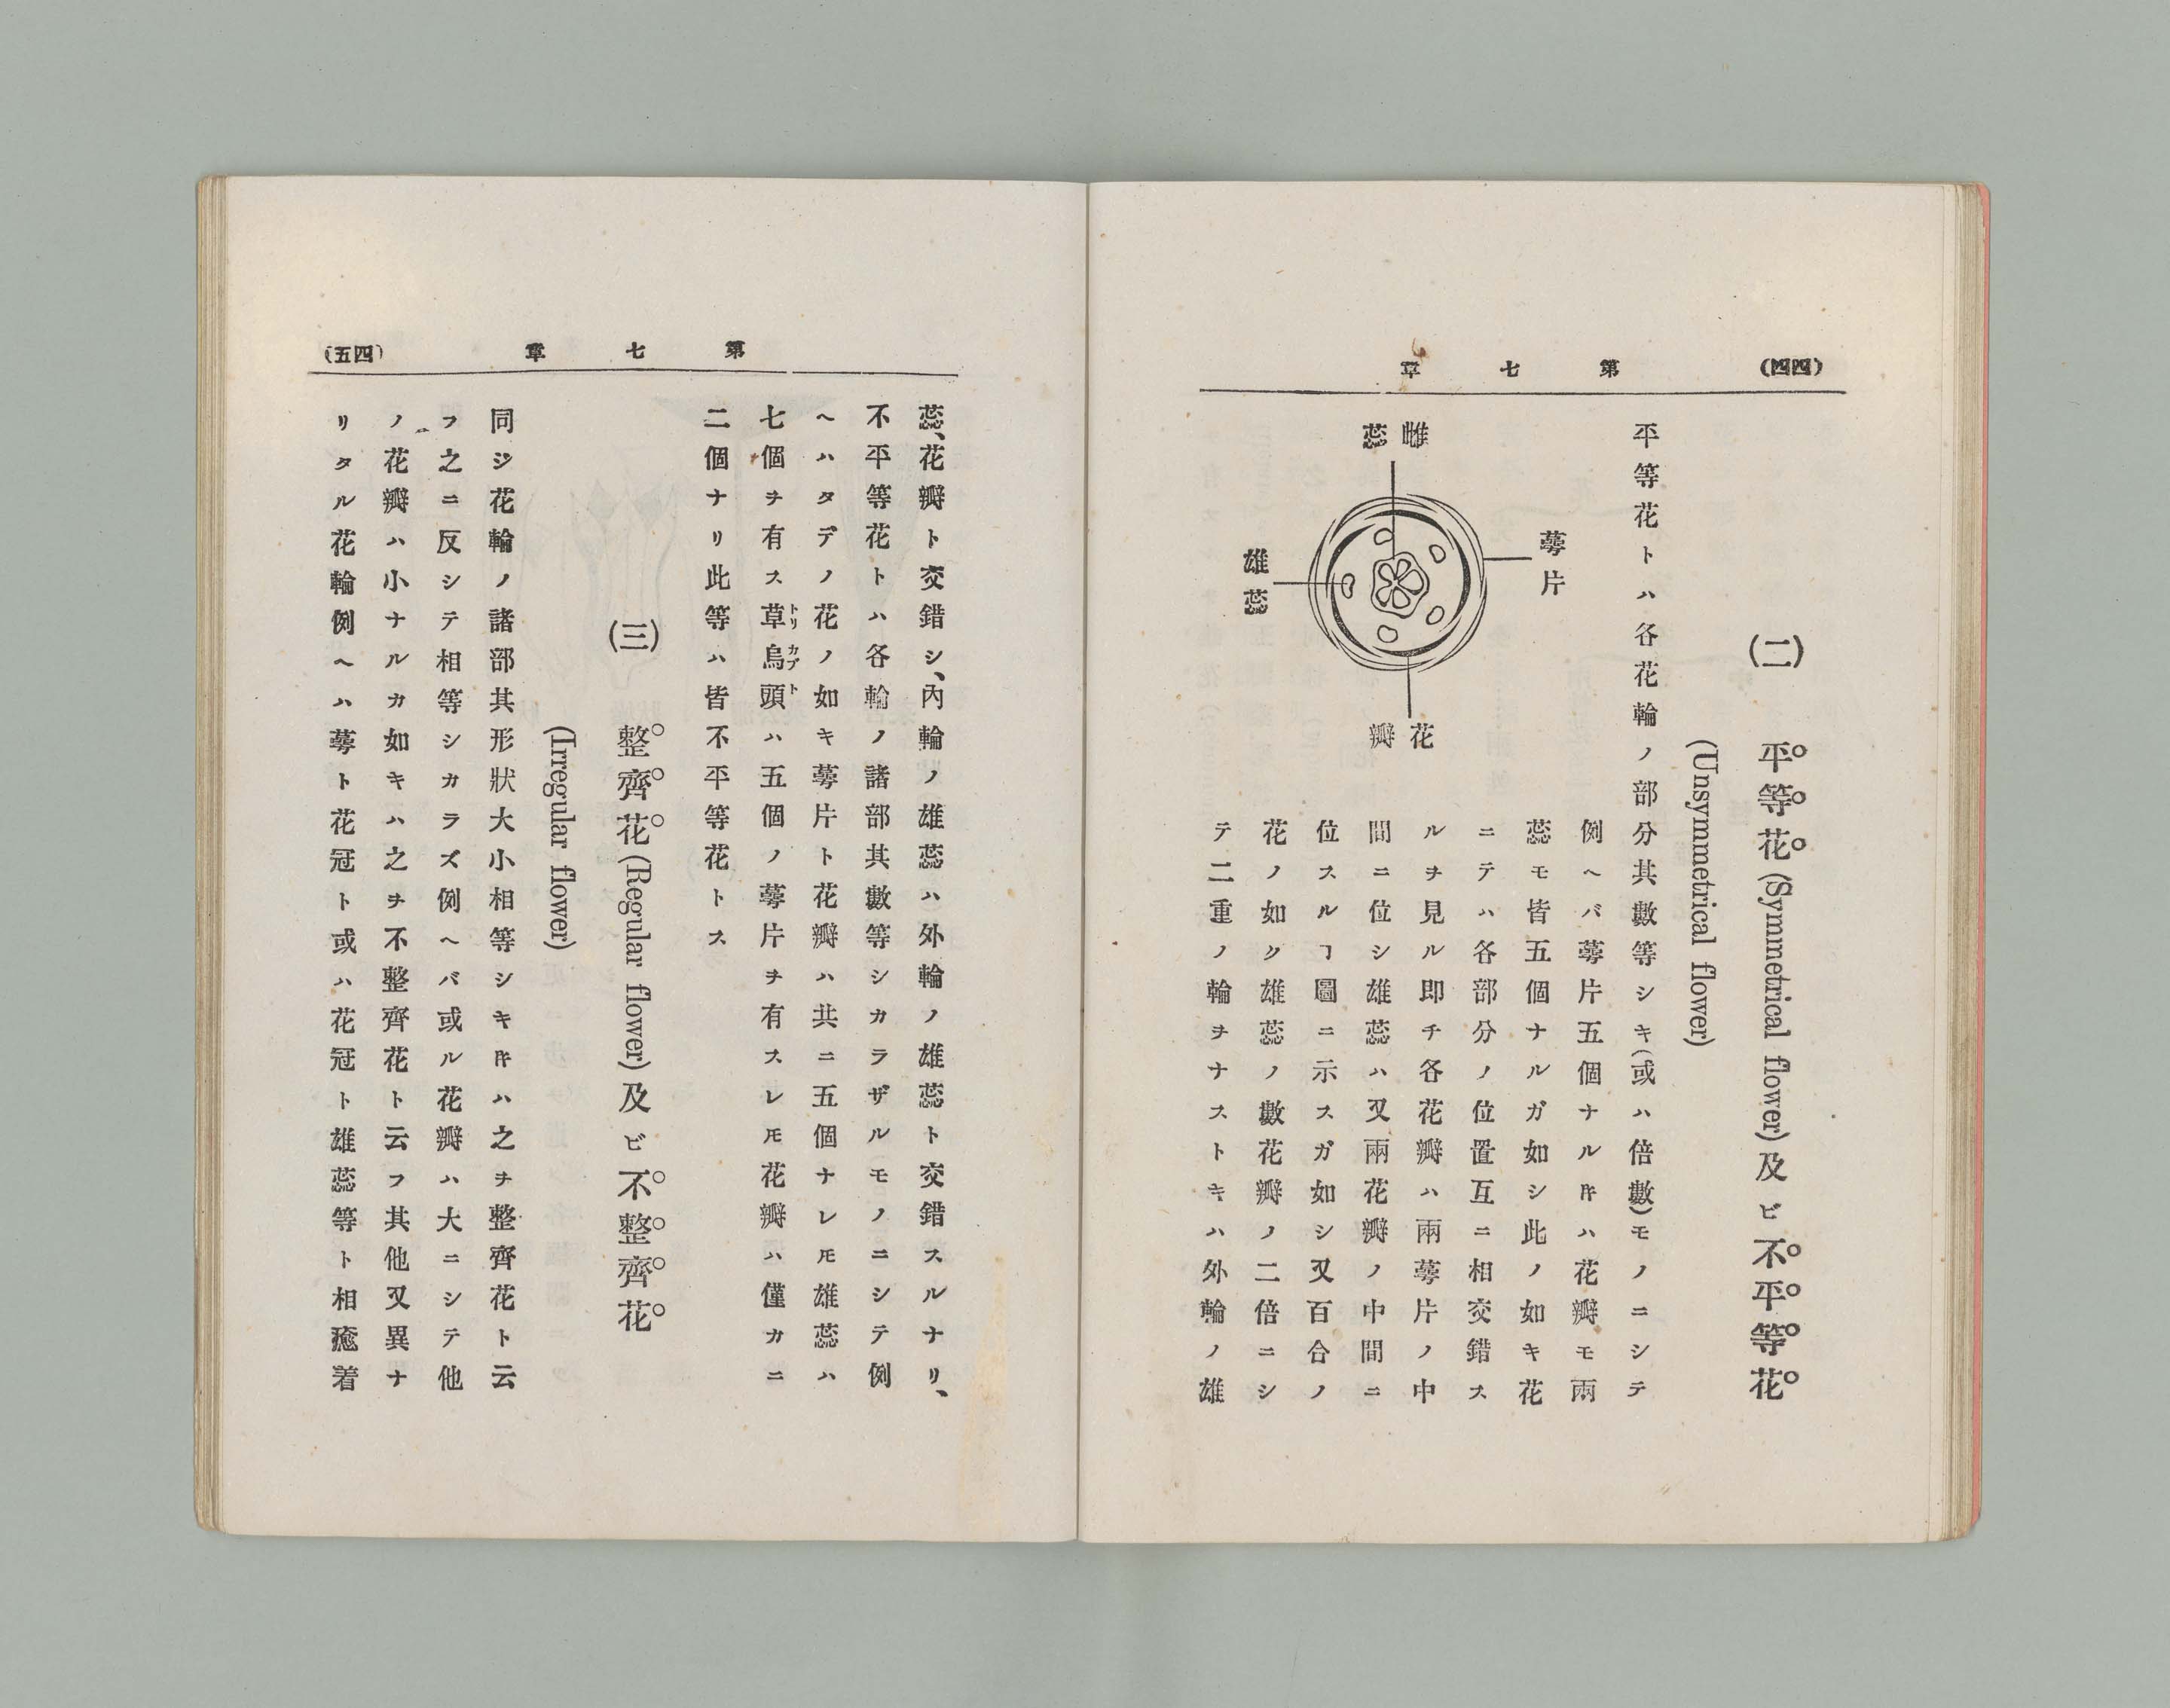 (四四)
第七章
(二) 平等花(Symmetrical flower)及ビ不平等花
(Unsymmetrical flower)
平等花トハ各花輪ノ部分其數等シキ(或ハ倍數)モノニシテ
例ヘバ蕚片五個ナルキハ花瓣モ雨
蕊モ皆五個ナルガ如シ此ノ如キ花
ニテハ各部分ノ位置互ニ相交錯ス
ルヲ見ル即チ各花瓣ハ兩蕚片ノ中
間ニ位シ雄蕊ハ又兩花瓣ノ中間ニ
位スルヿ圖ニ示スガ如シ又百合ノ
花ノ如ク雄蕊ノ數花瓣ノ二倍ニシ
テ二重ノ輪ヲナストキハ外輪ノ雄
雌蕊
蕚片
雄蕊
花瓣
第七章
(四五)
蕊、花瓣ト交錯シ、內輪ノ雄蕊ハ外輪ノ雄蕊ト交錯スルナリ、
不平等花トハ各輪ノ諸部其數等シカラザルモノニシテ例
ヘハタデノ花ノ如キ蕚片ト花瓣ハ共ニ五個ナレモ雄蕊ハ
七個ヲ有ス草烏頭ハ五個ノ蕚片ヲ有スレモ花瓣ハ僅カニ
トリカブト
二個ナリ此等ハ皆不平等花トス
(三) 整齊花(Regular flower)及ビ不整齊花
(Irregular flower)
同ジ花輪ノ諸部其形狀大小相等シキキハ之ヲ整齊花ト云
フ之ニ反シテ相等シカラズ例ヘバ或ル花瓣ハ大ニシテ他
ノ花瓣ハ小ナルカ如キハ之ヲ不整齊花ト云フ其他又異ナ
リタル花輪例ヘハ蕚ト花冠ト或ハ花冠ト雄蕊等ト相癒着